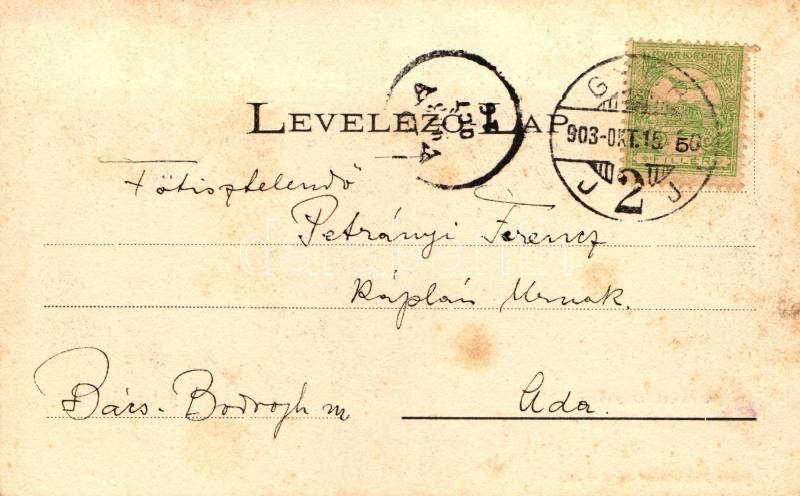 LEVELEZŐ-LAP
MAGYAR KIR. POSTA
FILLÉR
903-OKT.15.
2
J J
ADA
Főtisztelendő
Petrányi Ferencz
Káplán Urnak.
Bács-Bodrogh m
Ada.
darabanth